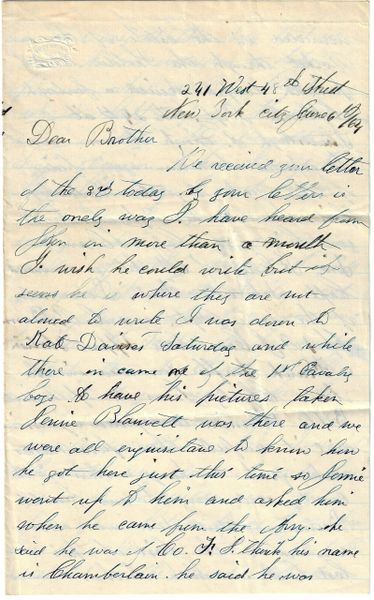 241 West 48th Street
New York City June 6th/64
Dear Brother
We received your letter
of the 3rd today by your letters is
the onely way I have heard from
John in more than a month
I wish he could write but it
seems he is where they are not
alowed to write I was down to
Kate Davises Saturday and while
there in came one of the 1st Cavalry
boys to have his pictures taken
Jennie Blauvelt was there and we
were all inquisitave to know him
he got here just this time so Jennie
went up to him and asked him
when he came from the Army. he
said he was of Co. F. I think his name
is Chamberlain. he said he was